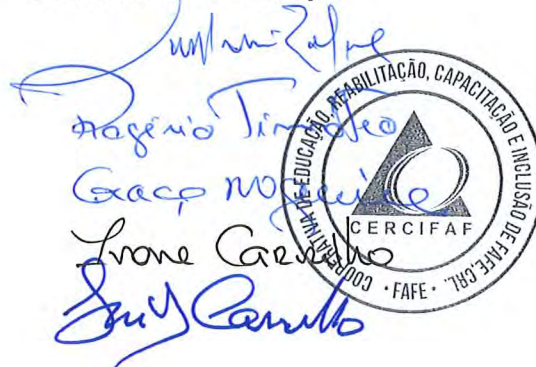 Rogério Timóteo
Graça Nogueira
Ivone Carvalho
Carvalho
COOPERATIVA DE EDUCAÇÃO, REABILITAÇÃO, CAPACITAÇÃO E INCLUSÃO DE FAFE, CRL.
CERCIFAF
• FAFE •